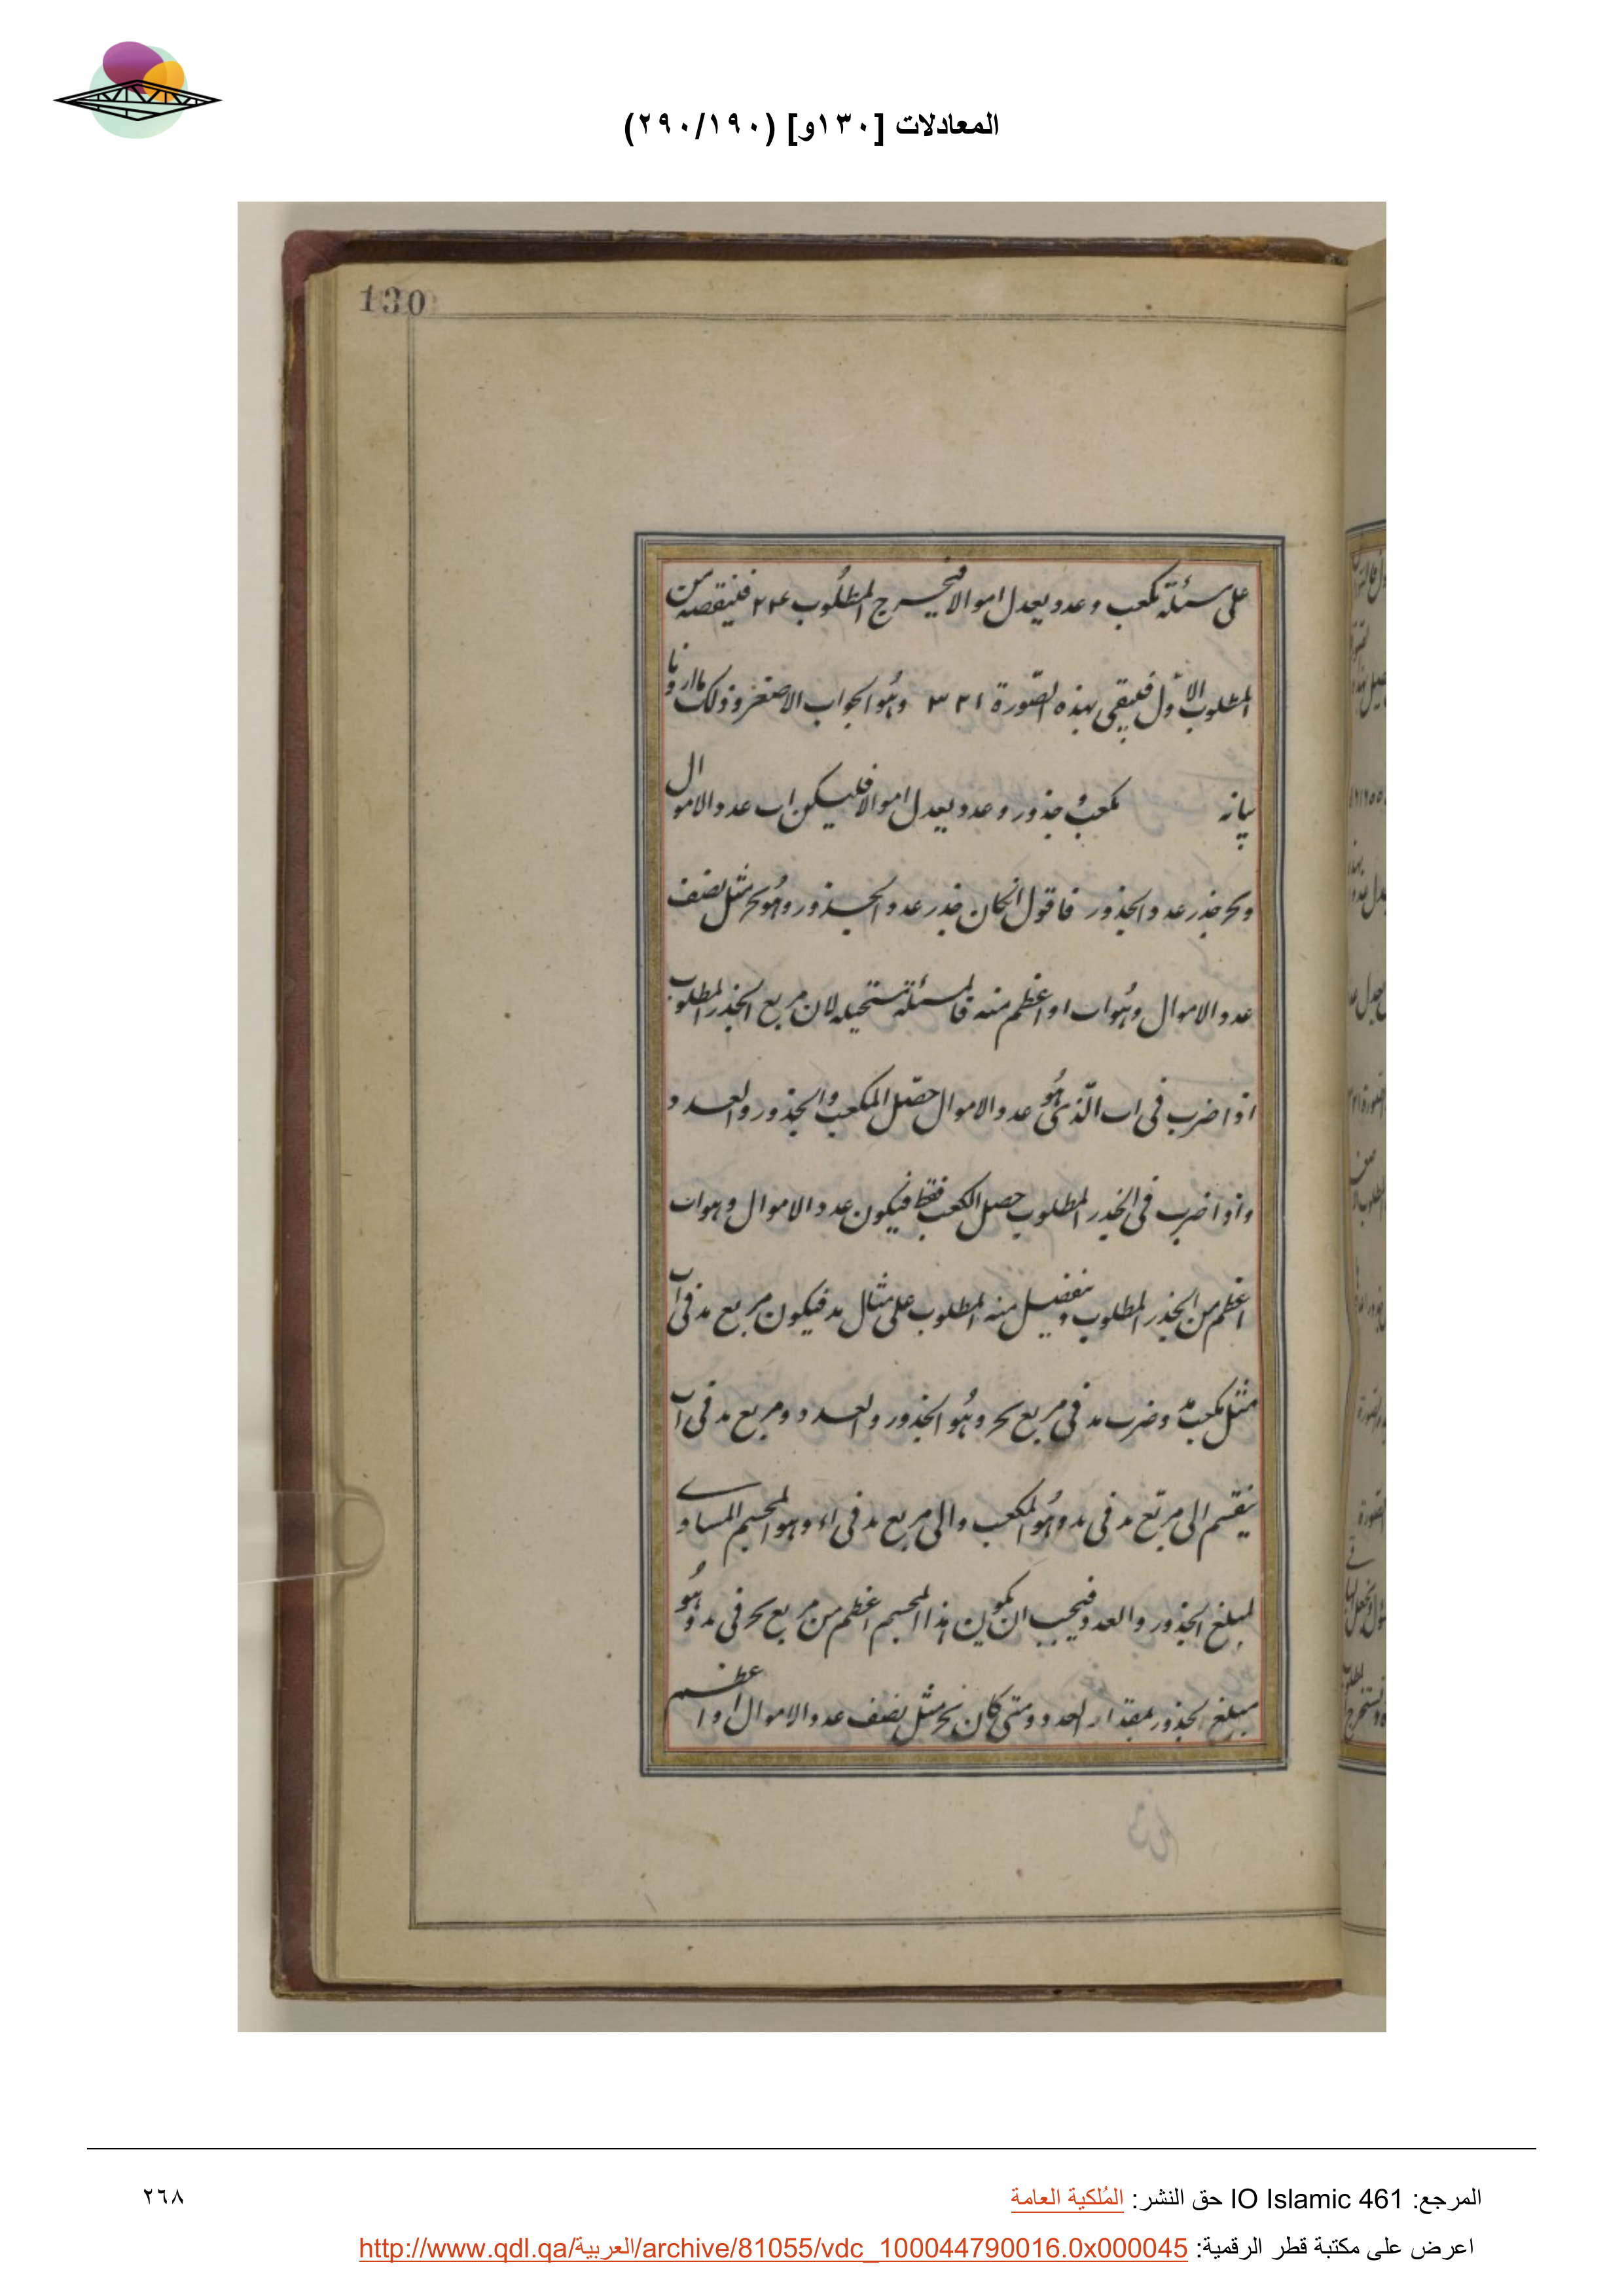 المعادلات [١٣٠و] (٢٩٠/١٩٠)
130
على مسئلة مكعب وعدد يعدل اموالا فيخرج المطلوب ٢٢٤ فلينقصه من
المطلوب الاول فيبقى بهذه الصورة ٣٢١ وهو الجواب الاصغر وذلك ما اردنا
بيانه مكعب وجذور وعدد يعدل اموالا فليكن اب عدد الاموال
وبحر جذر عدد الجذور فاقول ان كان جذر عدد الجذور وهو بحر مثل نصف
عدد الاموال وهو اب او اعظم منه فالمسئلة مستحيلة لان مربع الجذر المطلوب
اذا ضرب فى اب الذى هو عدد الاموال حصل المكعب والجذور والعدد
واذا ضرب فى الجذر المطلوب حصل الكعب فقط فيكون عدد الاموال وهو اب
اعظم من الجذر المطلوب ونفصل منه المطلوب على مثال مد فيكون مربع مد فى اب
مثل مكعب مد وضرب مد فى مربع بحر وهو الجذور والعدد ومربع مد فى اب
ينقسم الى مربع مد فى مد وهو المكعب والى مربع مد فى اء وهو المجسم المساوى
لمبلغ الجذور والعدد فيجب ان يكون هذا المجسم اعظم من مربع بحر فى مد وهو
مبلغ الجذور بمقدار العدد ومتى كان بحر مثل نصف عدد الاموال او اعظم
المرجع: IO Islamic 461 حق النشر: المُلكية العامة
٢٦٨
اعرض على مكتبة قطر الرقمية: http://www.qdl.qa/العربية/archive/81055/vdc_100044790016.0x000045